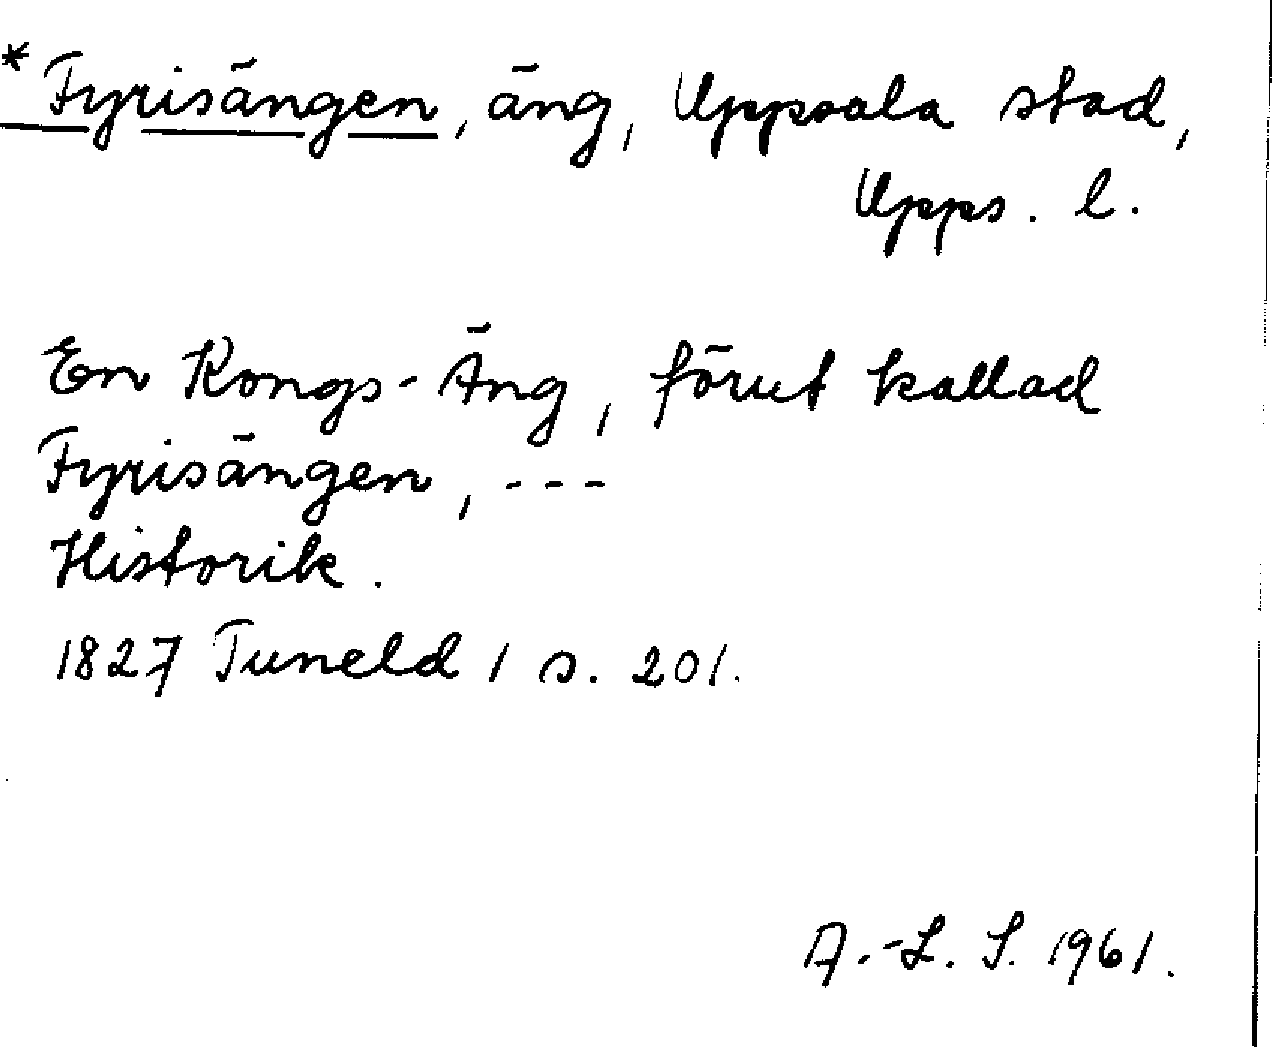 *Fyrisängen, äng, Uppsala stad,
Upps. l.
En Kongs-Äng, förut kallad
Fyrisängen, ---
Historik.
1827 Tuneld 1 s. 201.
A.-L. S. 1961.